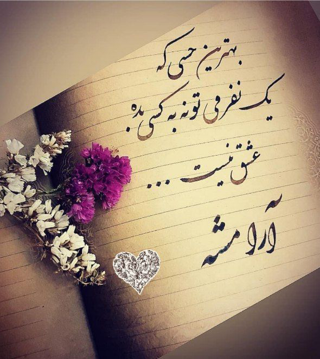 بهترین حسی که
یک نفر می تونه به کسی بده
عشق نیست ...
آرامشه